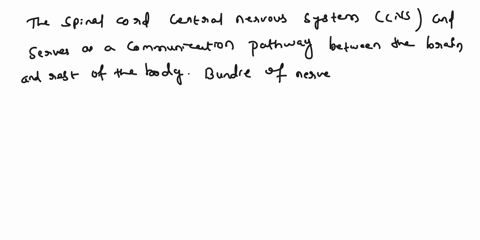 The spinal cord central nervous system (CNS) and
serves as a communication pathway between the brain
and rest of the body. Bundle of nerve